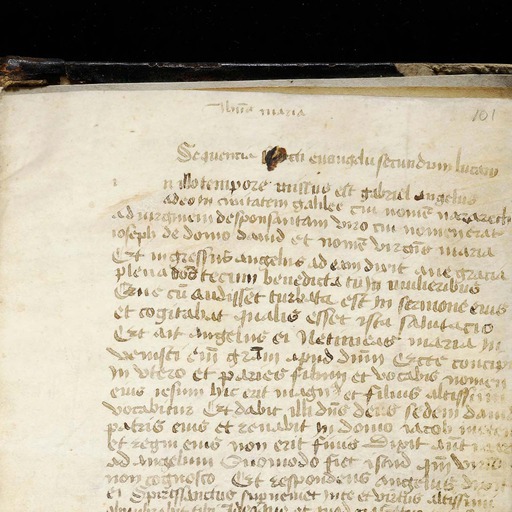 Ihus maria
101
Sequentia sancti euangelii secundum lucam
n illo tempore missus est gabriel angelus
a deo in ciuitatem galilee cui nomen nazareth
ad virginem desponsatam viro cui nomen erat
ioseph de domo dauid et nomen virginis maria
Et ingressus angelus ad eam dixit aue gracia
plena dns tecum benedicta tu in mulieribus
Que cu audisset turbata est in sermone eius
et cogitabat qualis esset ista salutacio
Et ait angelus ei Ne timeas maria in
venisti em gram apud dnm Ecce concip
in vtero et paries filium et vocabis nomen
eius iesum hic erit magnus et filius altissimi
vocabitur Et dabit illi dns deus sedem dauid
patris eius et regnabit in domo iacob in eter
et regni eius non erit finis Dixit aut
ad angelum Quomodo fiet istud qm virum
non cognosco Et respondens angelus dixit
ei Spiritussanctus superueniet in te et virtus altissimi